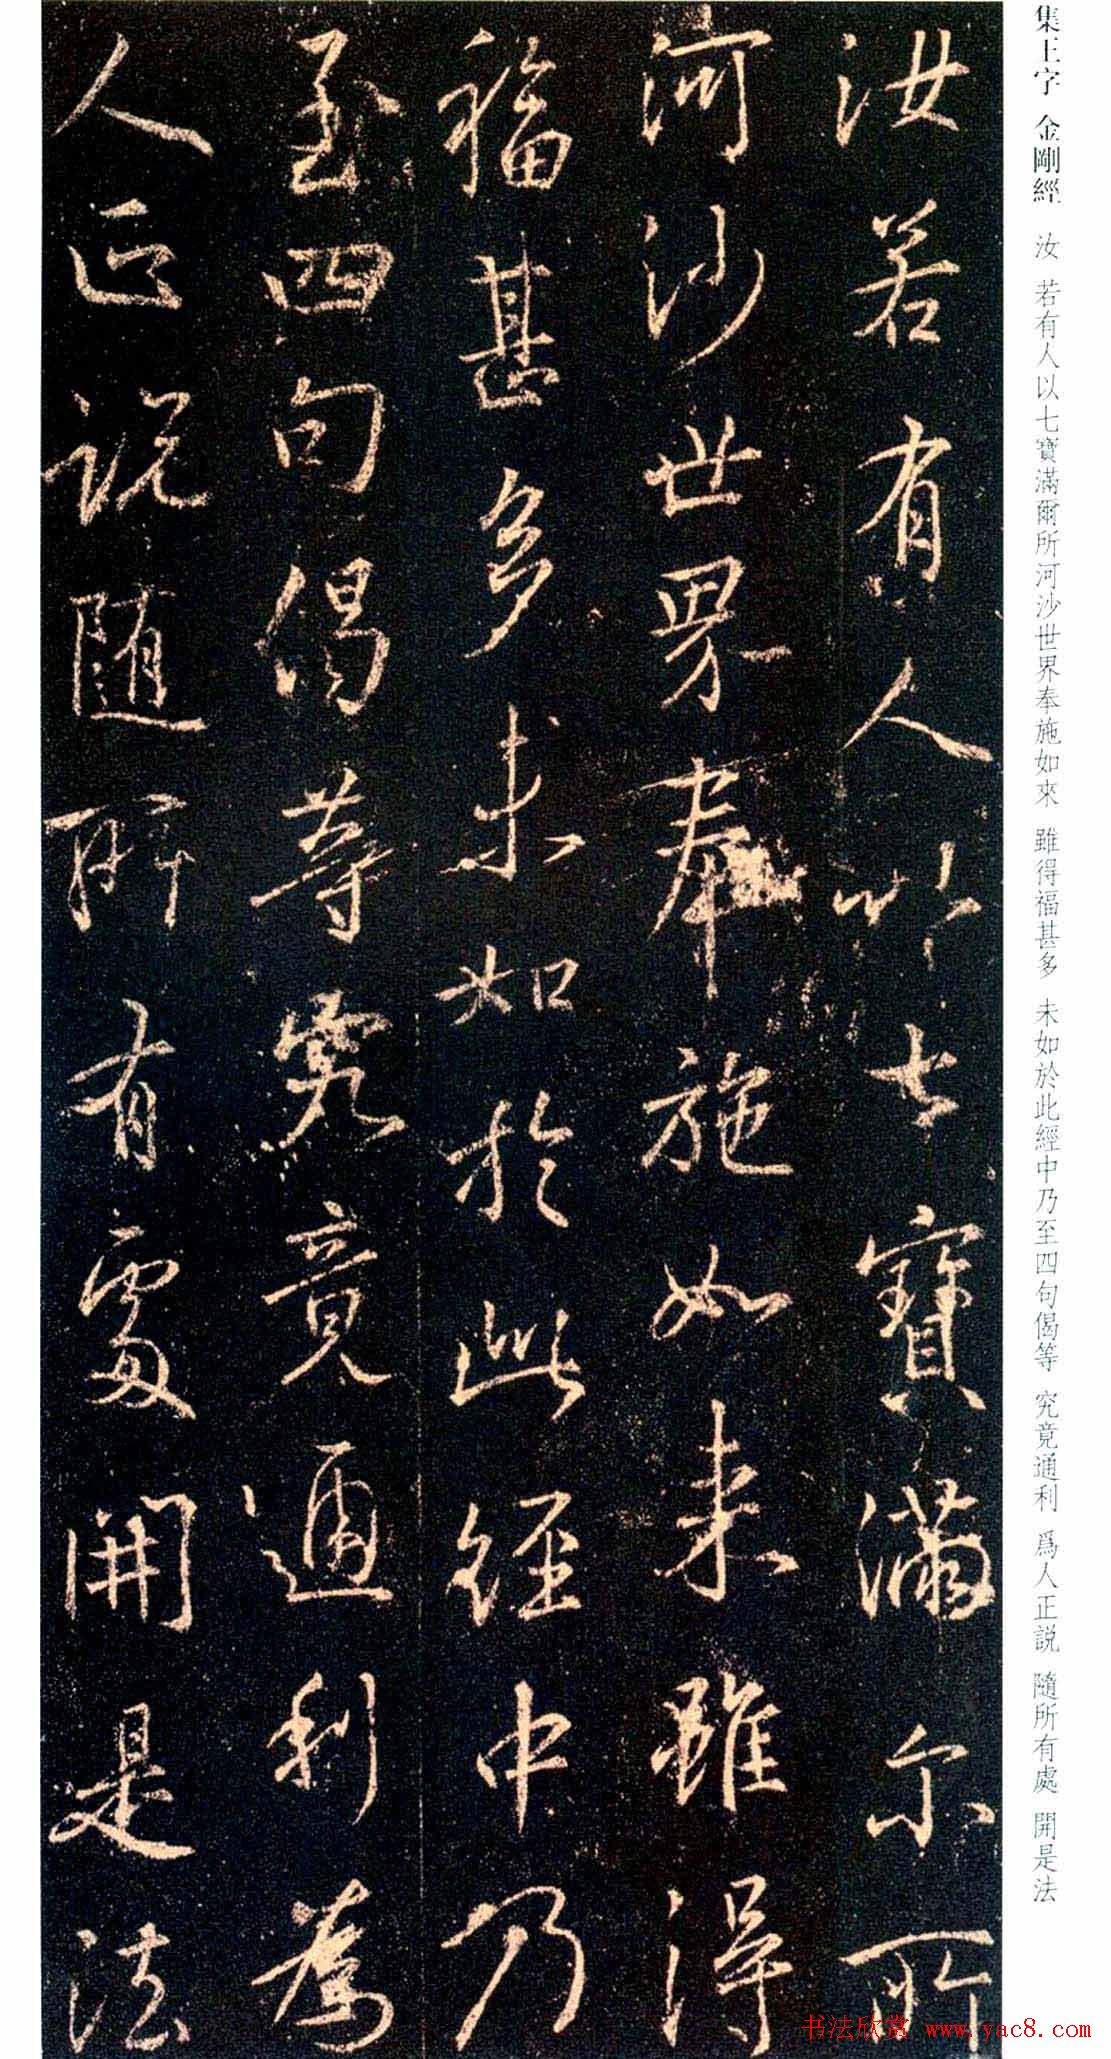 集王字 金剛經 汝 若有人以七寶滿爾所河沙世界奉施如來 雖得福甚多 未如於此經中乃至四句偈等 究竟通利 爲人正説 隨所有處 開是法
汝若有人以七寶滿尔所
河沙世界奉施如来雖得
福甚多未如於此經中乃
至四句偈等究竟通利為
人正説随所有處開是法
书法欣赏 www.yac8.com